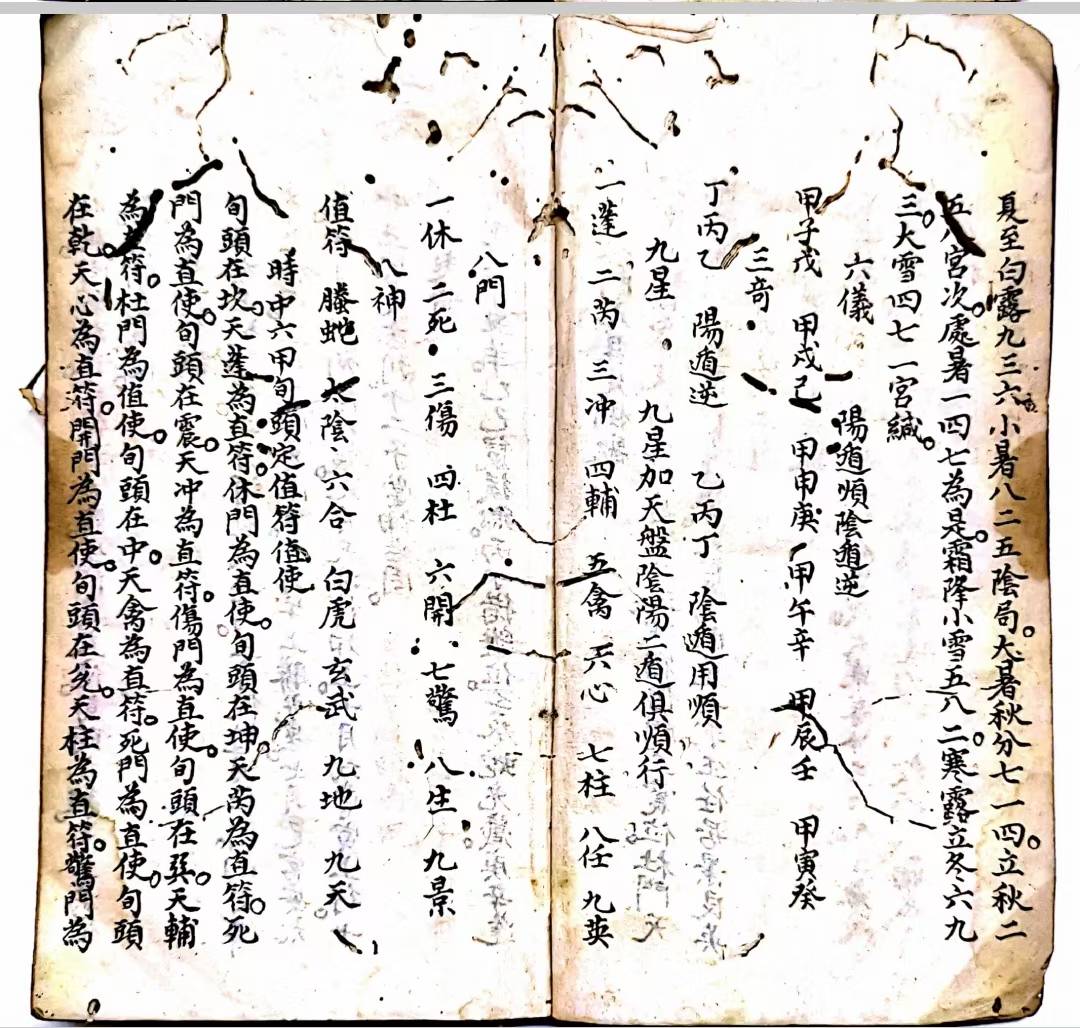 夏至白露九三六小暑八二五陰局大暑秋分七一四立秋二
五八宮次處暑一四七為是霜降小雪五八二寒露立冬六九
三大雪四七一宮緘
六儀 陽遁順陰遁逆
甲子戊 甲戌己 甲申庚 甲午辛 甲辰壬 甲寅癸
三奇
丁丙乙 陽遁逆 乙丙丁 陰遁用順
九星 九星加天盤陰陽二遁俱順行
一蓬 二芮 三冲 四輔 五禽 六心 七柱 八任 九英
八門
一休 二死 三傷 四杜 六開 七驚 八生 九景
八神
值符 螣虵 太陰 六合 白虎 玄武 九地 九天
時中六甲旬頭定值符值使
旬頭在坎天蓬為直符休門為直使旬頭在坤天芮為直符死
門為直使旬頭在震天冲為直符傷門為直使旬頭在巽天輔
為直符杜門為值使旬頭在中天禽為直符死門為直使旬頭
在乾天心為直符開門為直使旬頭在兌天柱為直符驚門為